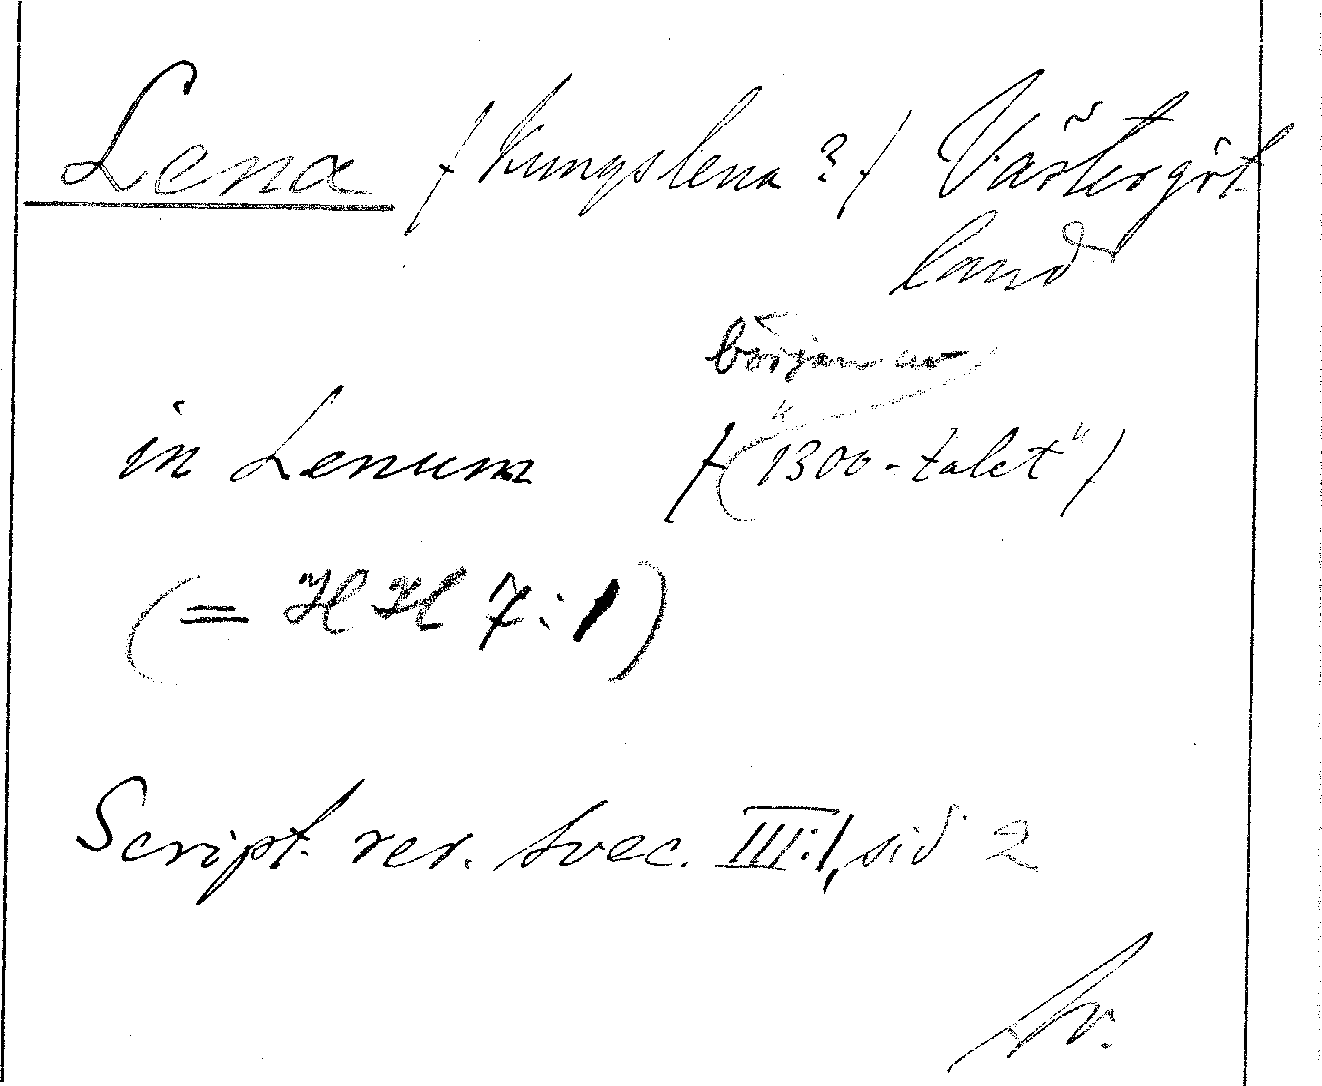 Lena /Kungslena?/ Västergöt
land
början av
in Lenum /("1300-talet"/
(= HH 7:1)
Script. rer. svec. III:1, sid 2